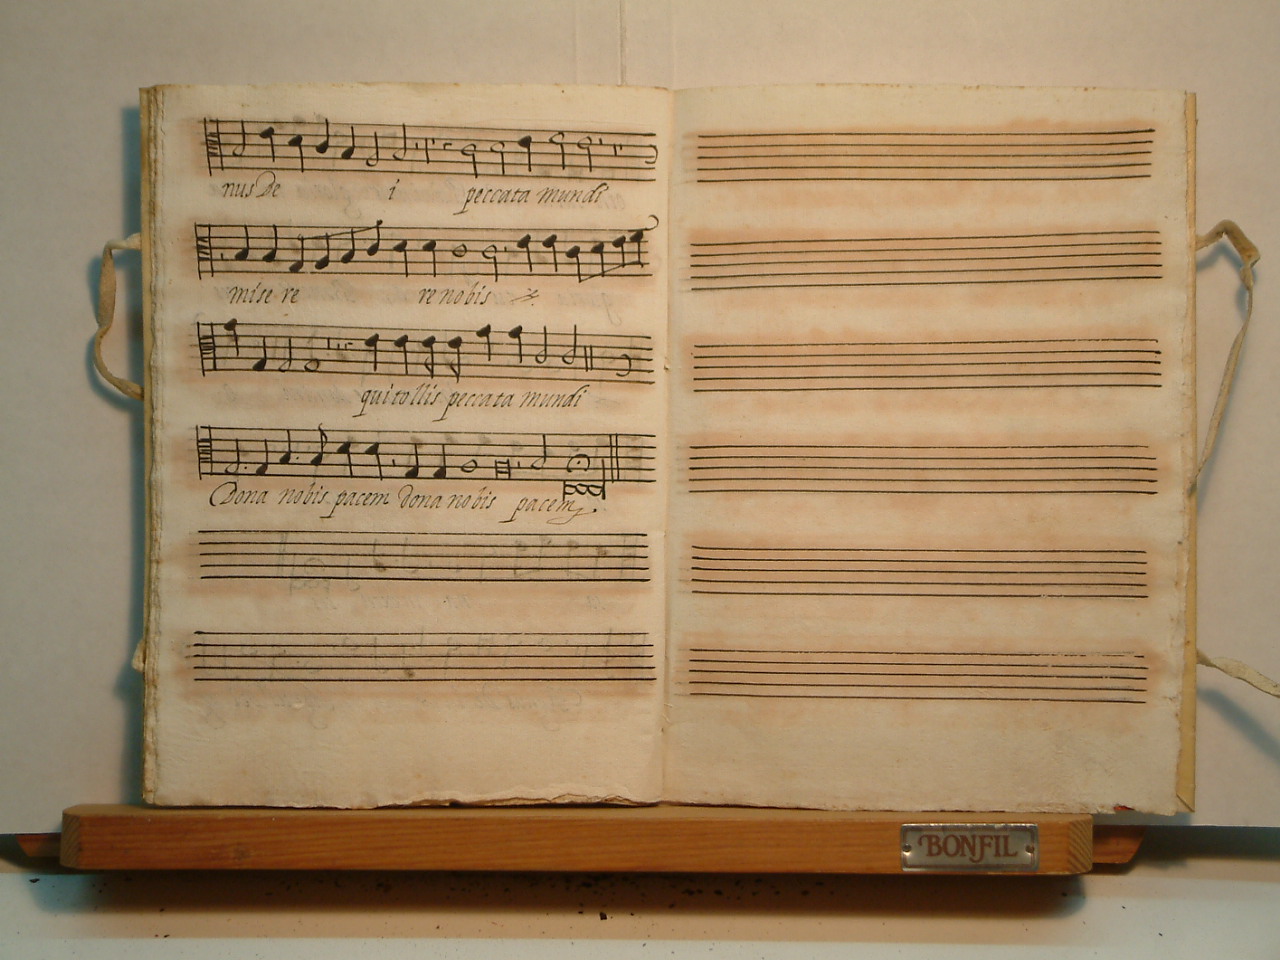 nus De i peccata mundi
mise re re nobis
qui tollis peccata mundi
Dona nobis pacem dona nobis pacem
BONFIL